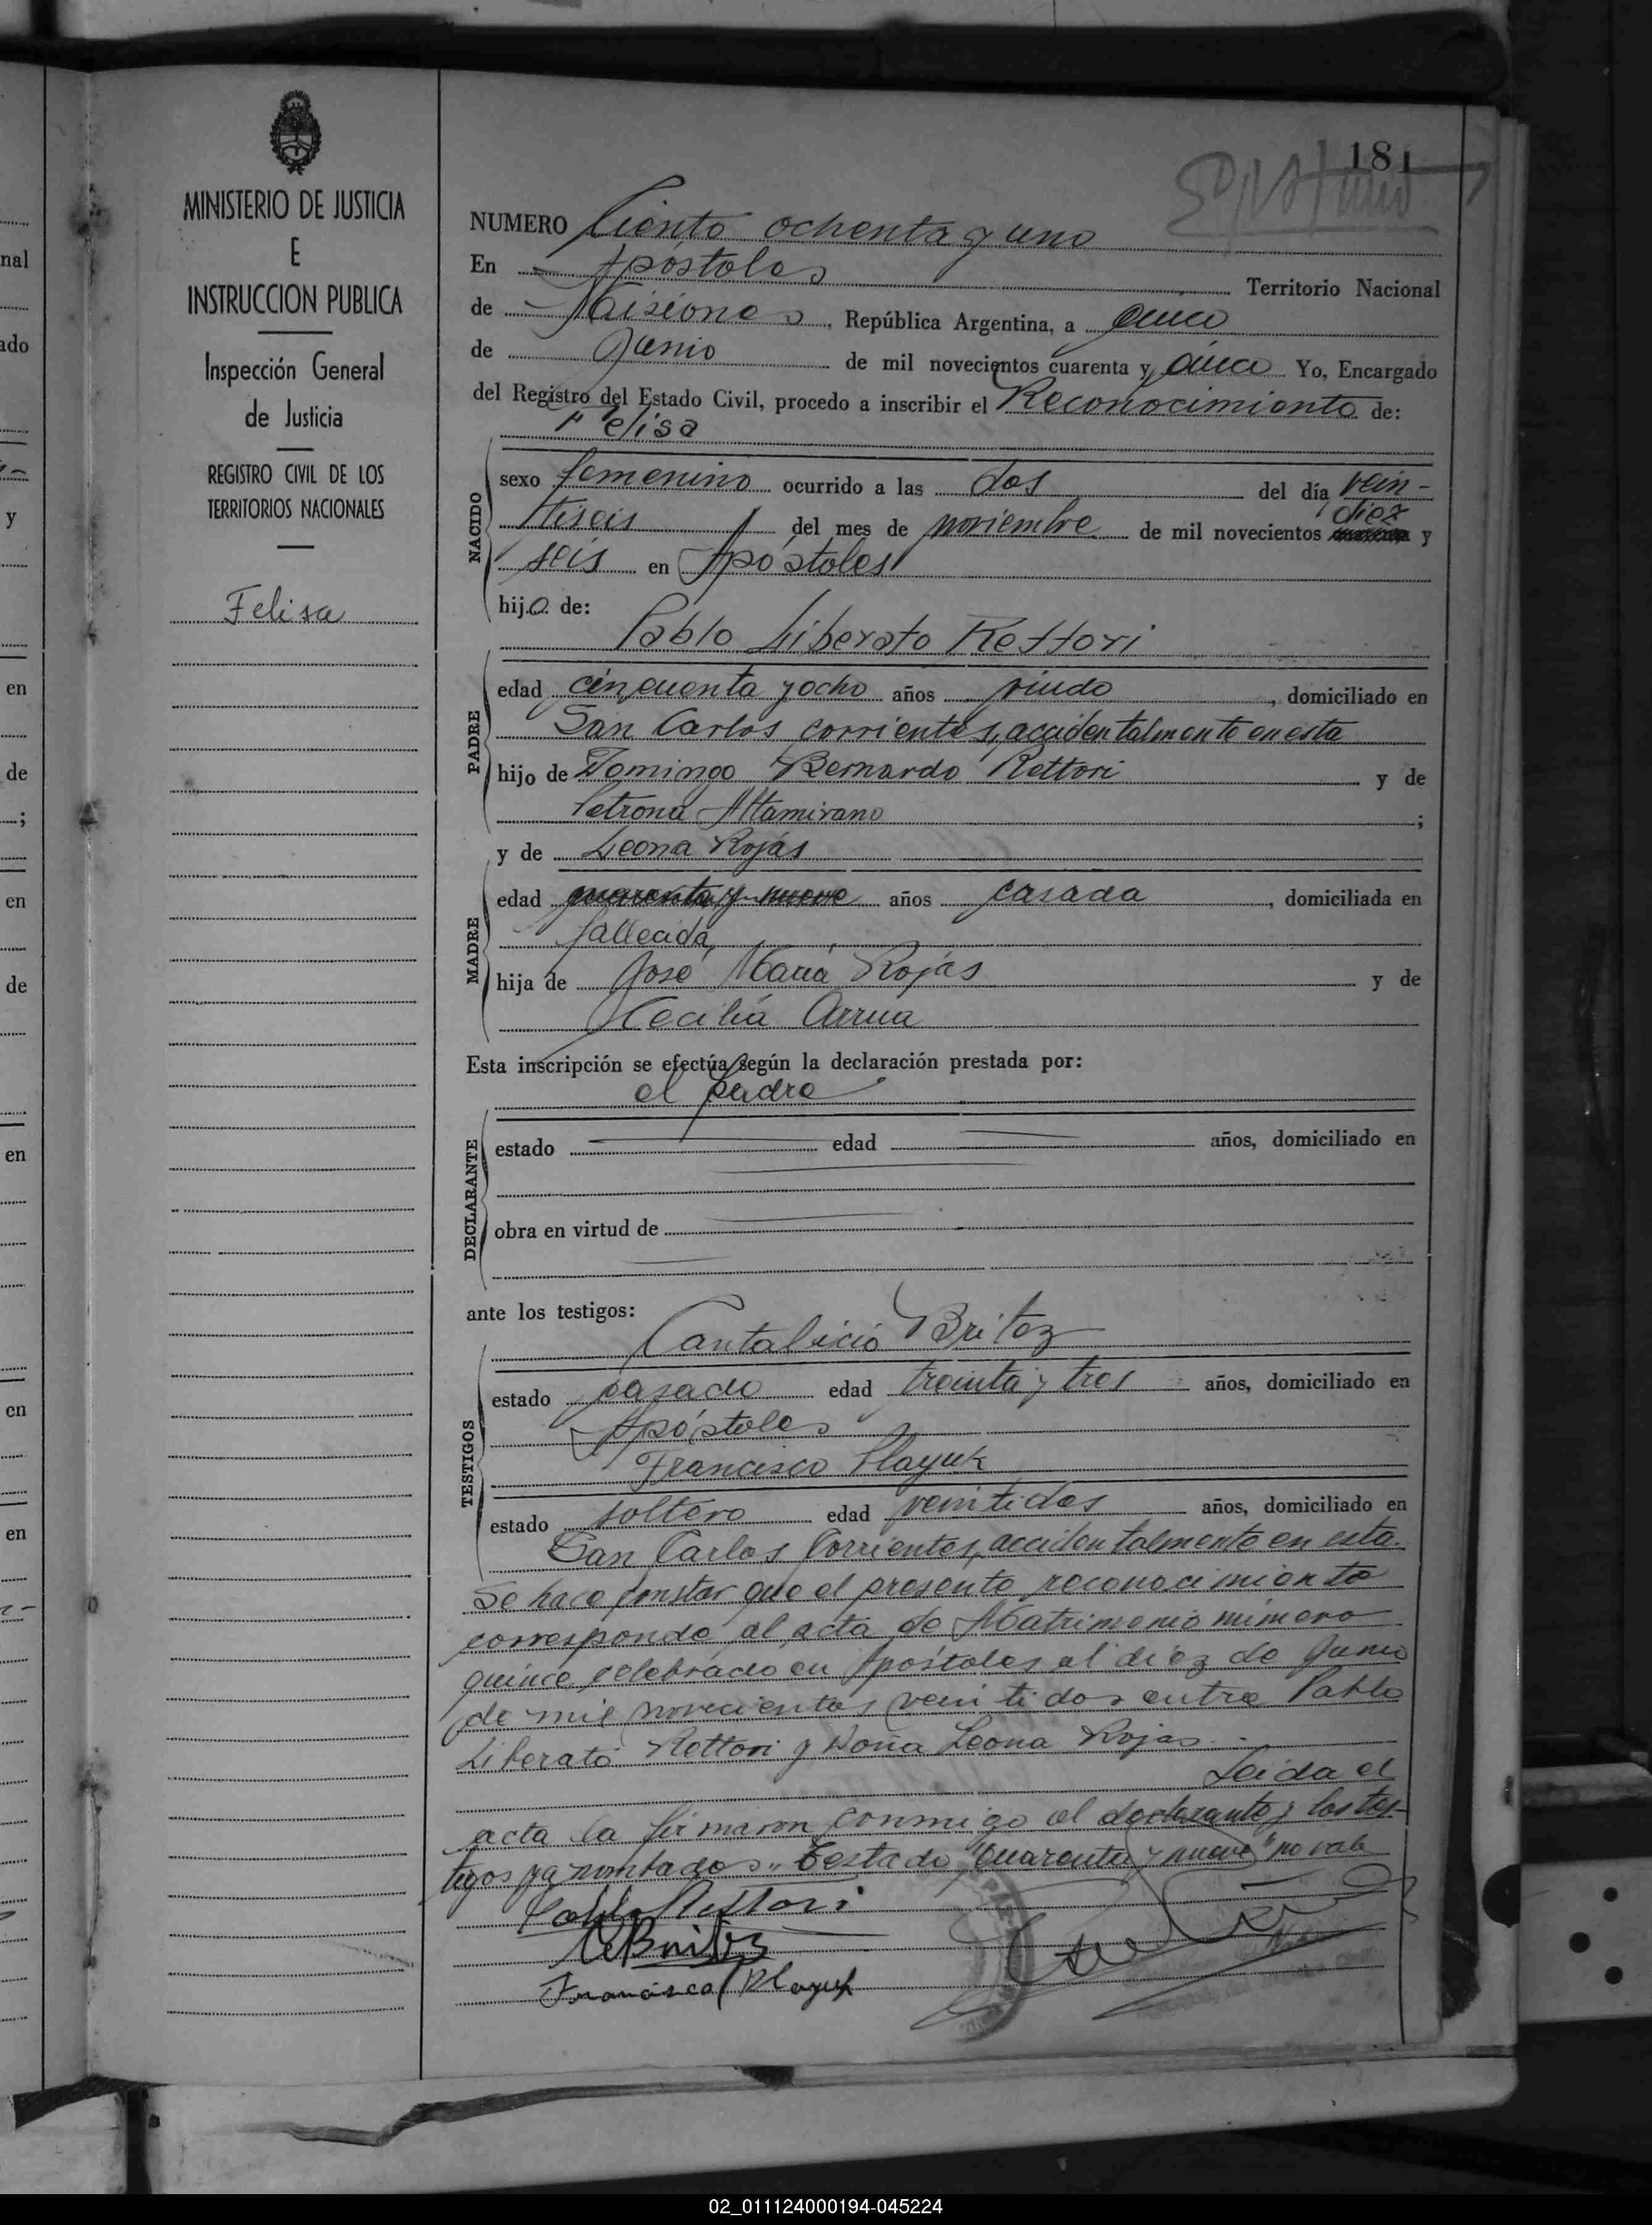 181
MINISTERIO DE JUSTICIA
E
INSTRUCCION PUBLICA
Inspección General
de Justicia
REGISTRO CIVIL DE LOS
TERRITORIOS NACIONALES
Felisa
NUMERO Ciento ochenta y uno
En Apóstoles Territorio Nacional
de Misiones, República Argentina, a cinco
de Junio de mil novecientos cuarenta y cinco Yo, Encargado
del Registro del Estado Civil, procedo a inscribir el Reconocimiento de:
Felisa
NACIDO
sexo femenino ocurrido a las dos del día vein-
tiseis del mes de noviembre de mil novecientos diez y
seis en Apóstoles
hijo de:
Pablo Liberato Rettori
PADRE
edad cincuenta y ocho años viudo, domiciliado en
San Carlos Corrientes, accidentalmente en esta
hijo de Domingo Bernardo Rettori y de
Petrona Altamirano ;
y de Leona Rojas
MADRE
edad cuarenta y nueve años casada, domiciliada en
fallecida,
hija de José María Rojas y de
Cecilia Arrua
Esta inscripción se efectúa según la declaración prestada por:
el padre
DECLARANTE
estado edad años, domiciliado en
obra en virtud de
ante los testigos:
Cantalicio Britez
TESTIGOS
estado casado edad treinta y tres años, domiciliado en
Apóstoles
Francisco Playuk
estado soltero edad veintidos años, domiciliado en
San Carlos Corrientes, accidentalmente en esta.
Se hace constar que el presente reconocimiento
corresponde al acta de Matrimonio número
quince celebrado en Apóstoles el diez de Junio
de mil novecientos veintidos entre Pablo
Liberato Rettori y Doña Leona Rojas.
Leida el
acta la firmaron conmigo el declarante y los tes-
tigos ya nombrados. Testado "cuarenta y nueve" no vale
Pablo Rettori
C Britez
Francisco Playuk
nal
ado
y
en
de
;
en
de
en
en
en
02_011124000194-045224